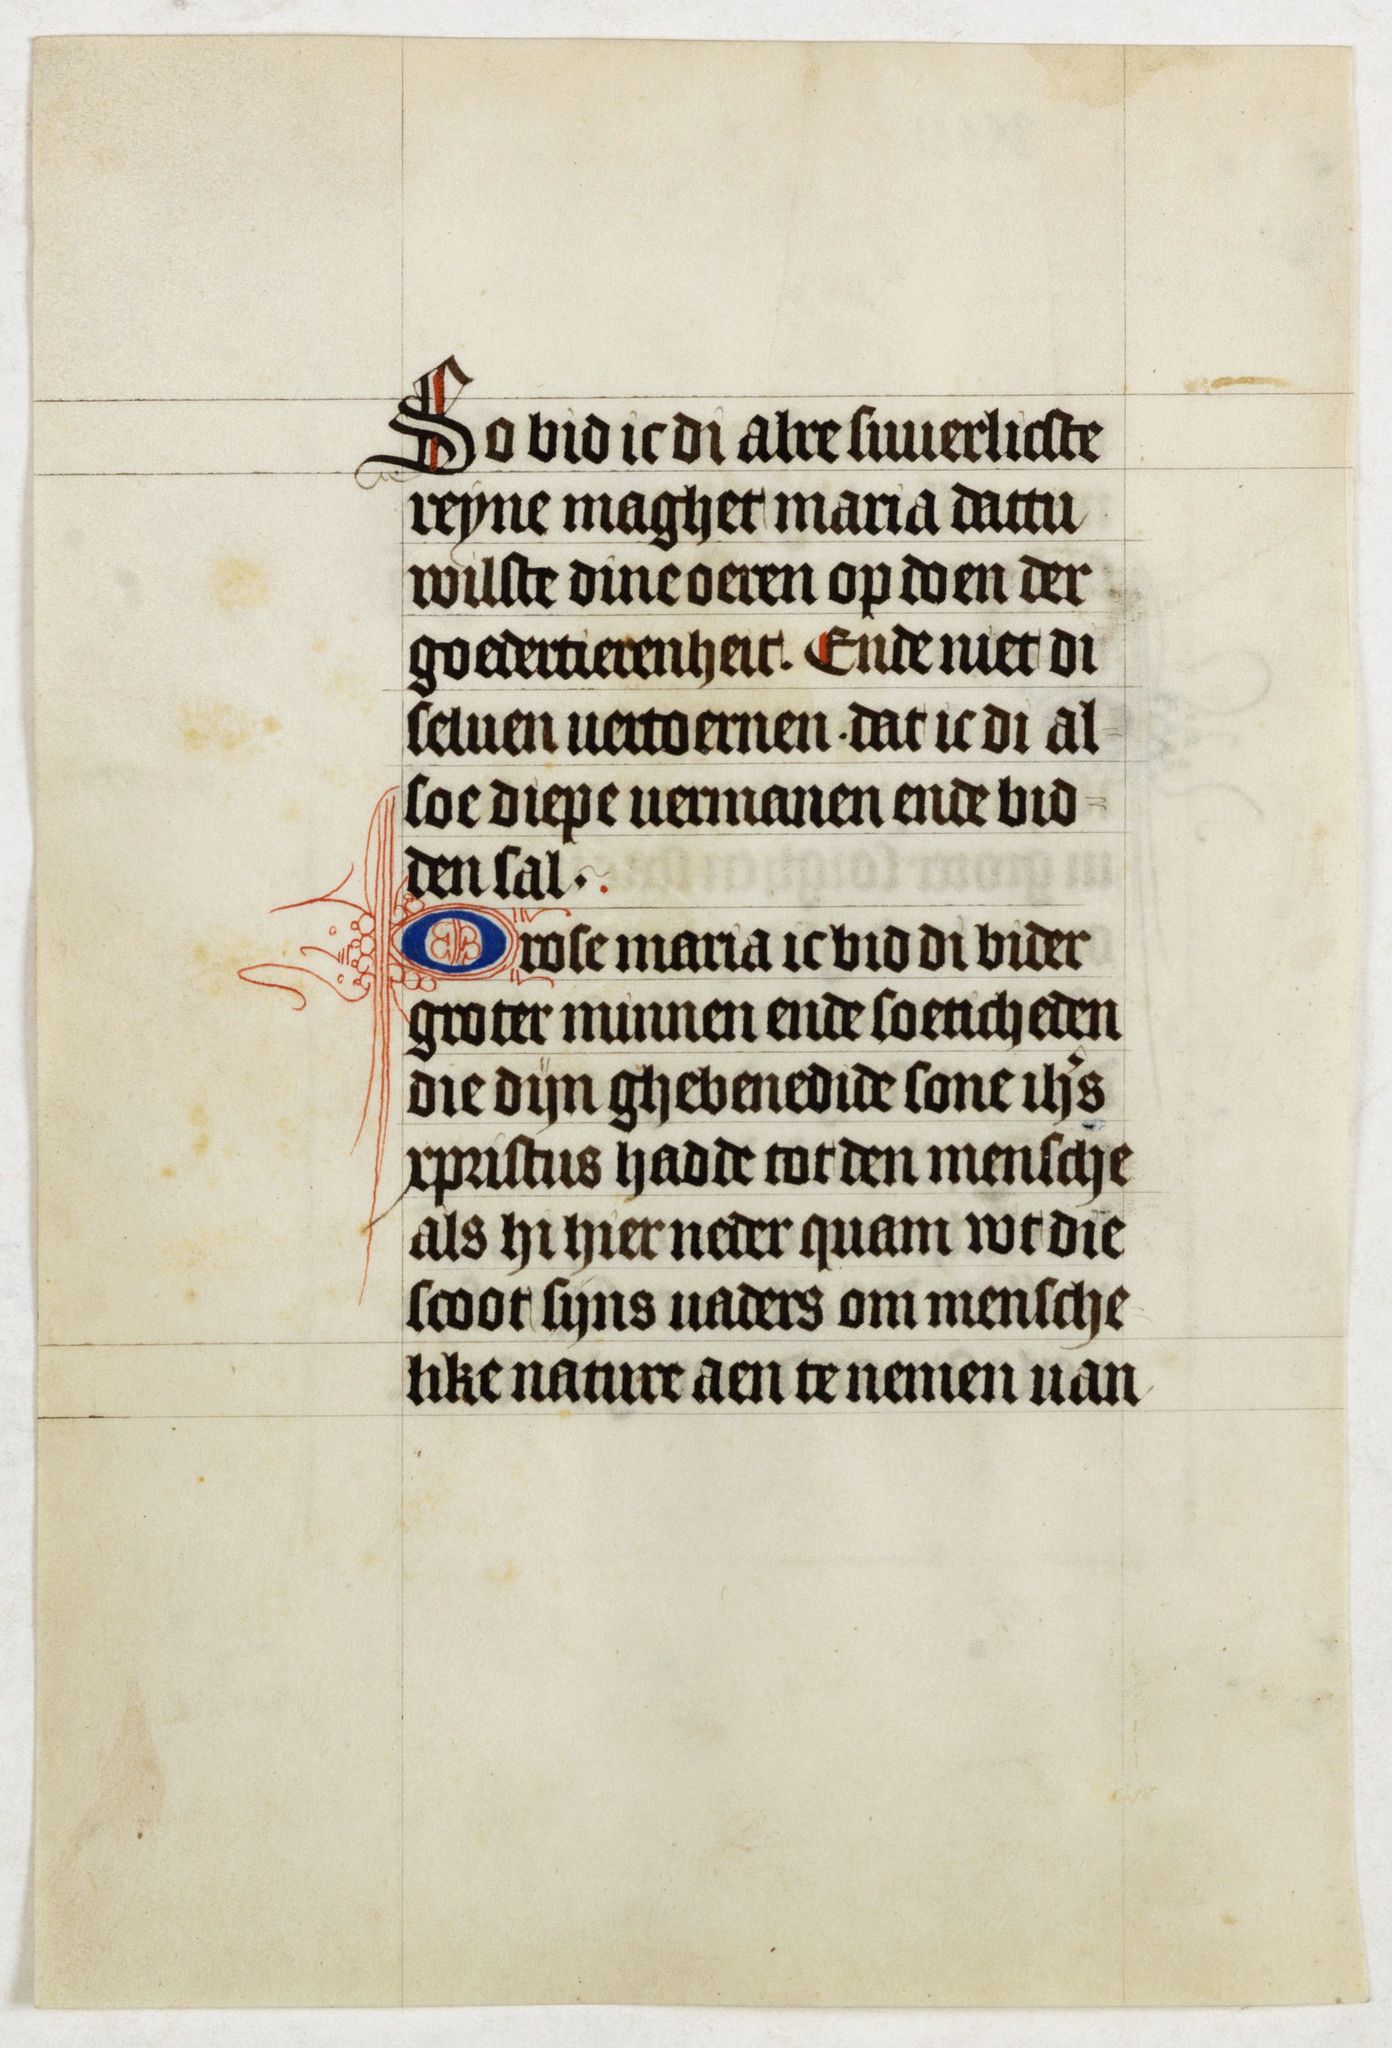 So bid ic di alre suuerlicste
reyne maghet maria dattu
wilste dine oeren op doen der
goedertierenheit. Ende niet di
seluen uertoernen ·dat ic di al=
soe diepe uermanen ende bid=
den sal·.
O rose maria ic bid di bi der
groter minnen ende soeticheden
die dijn ghebenedide sone ihs
xpristus hadde tot den mensche
als hi hier neder quam wt die
scoot sijns uaders om mensche
like nature aen te nemen uan